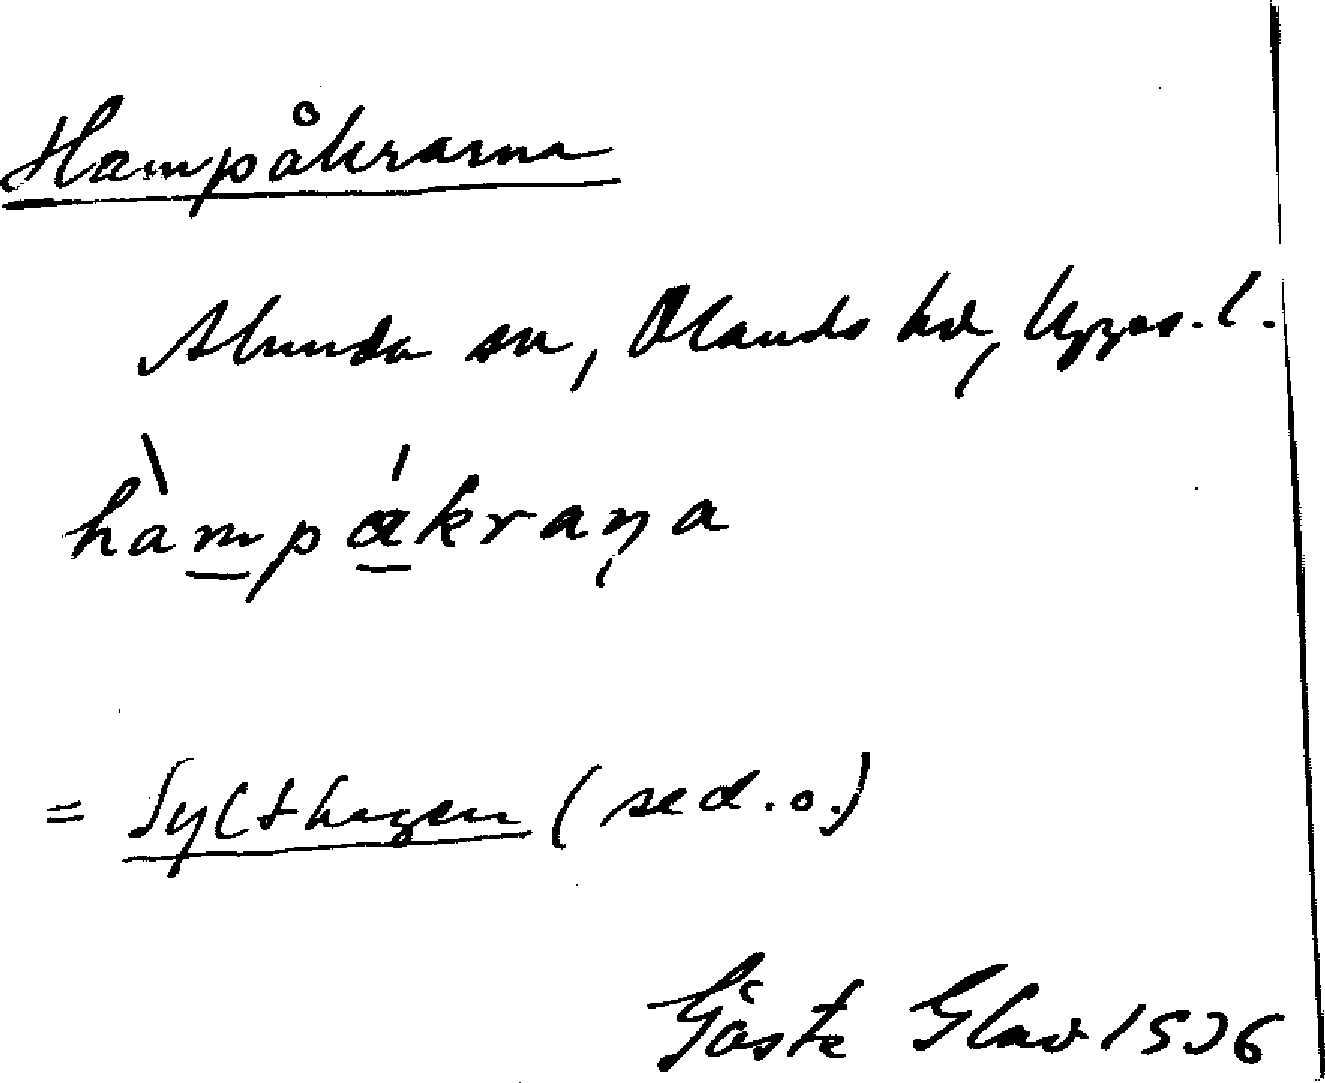 Hampåkrarna
Alunda sn, Olands hd, Upps. l.
hàmpákraṇa
= Sylthagen (se d. o.)
Gösta Glav 1936